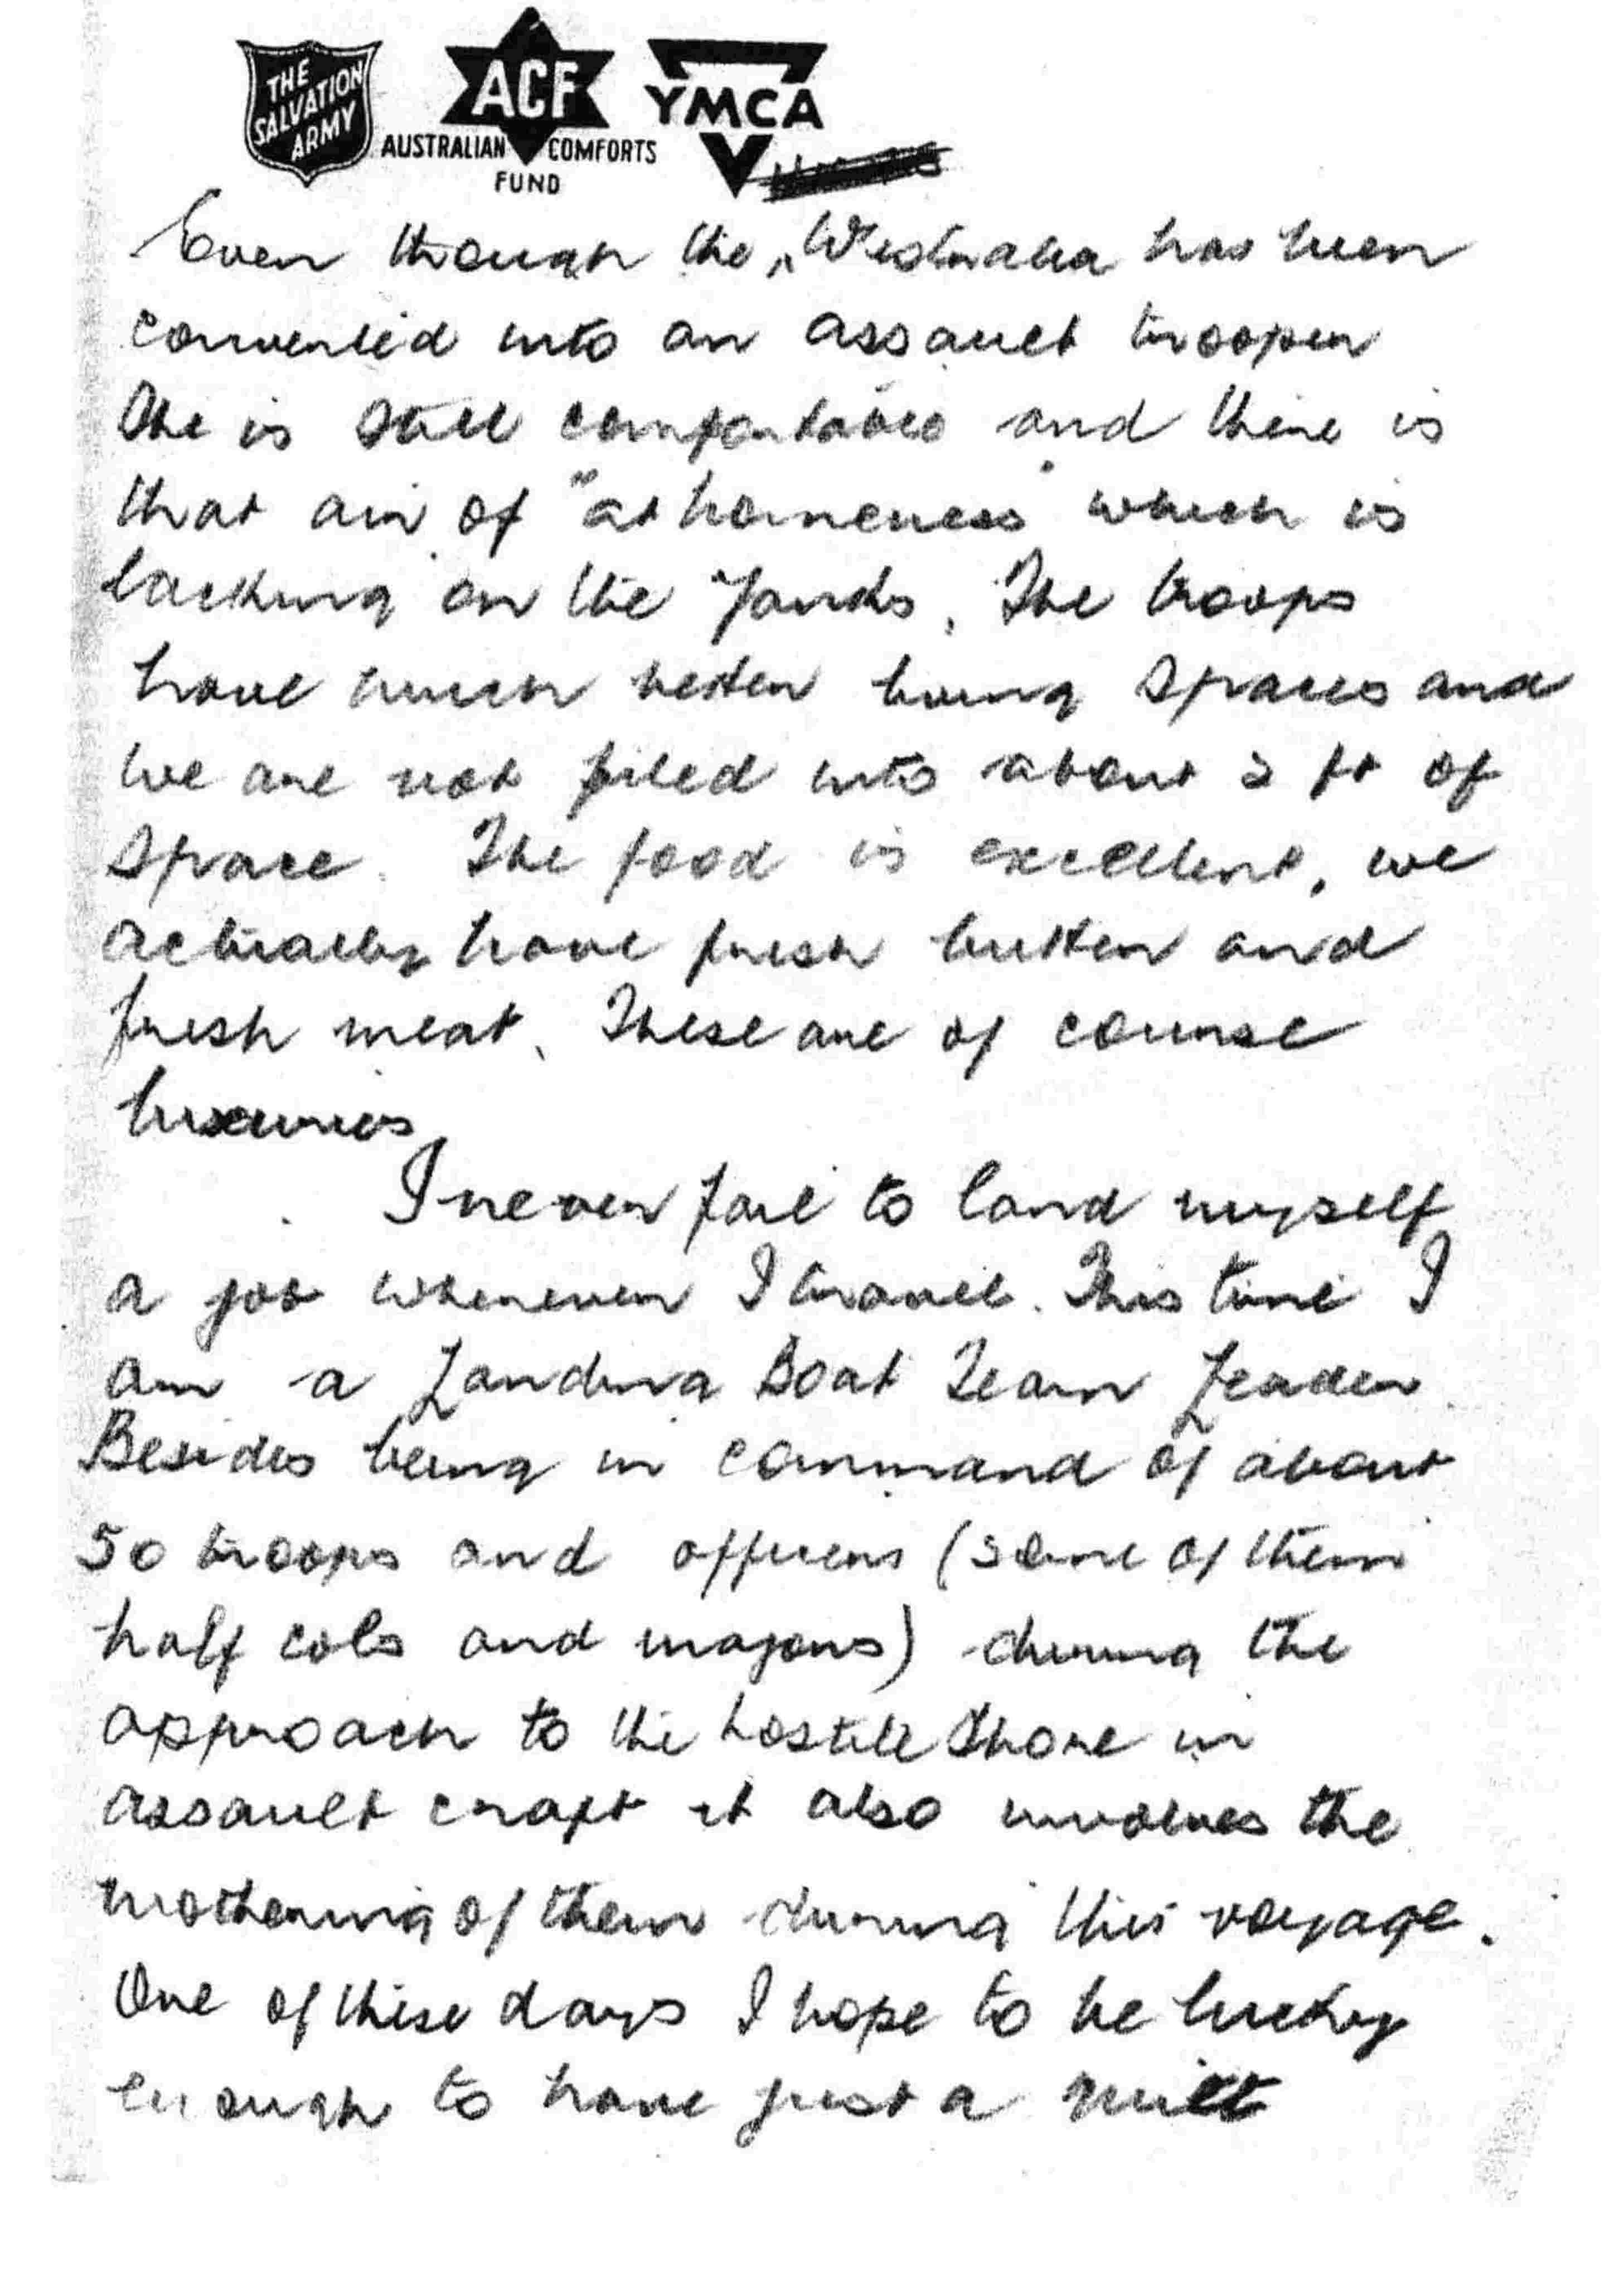 THE SALVATION ARMY
ACF
AUSTRALIAN COMFORTS FUND
YMCA
Even though the "Westralia has been
converted into an assault trooper
She is still comfortable and there is
that air of "at homeness" which is
lacking on the Yanks. The troops
have much better living spaces and
we are not piled into about 2 ft of
space. The food is excellent, we
actually have fresh butter and
fresh meat. These are of course
luxuries,
I never fail to land myself
a job whenever I travel. This time I
am a Landing Boat Team Leader.
Besides being in command of about
50 troops and officers (some of them
half cols and majors) during the
approach to the hostile shore in
assault craft it also involves the
mothering of them during this voyage.
One of these days I hope to be lucky
enough to have just a